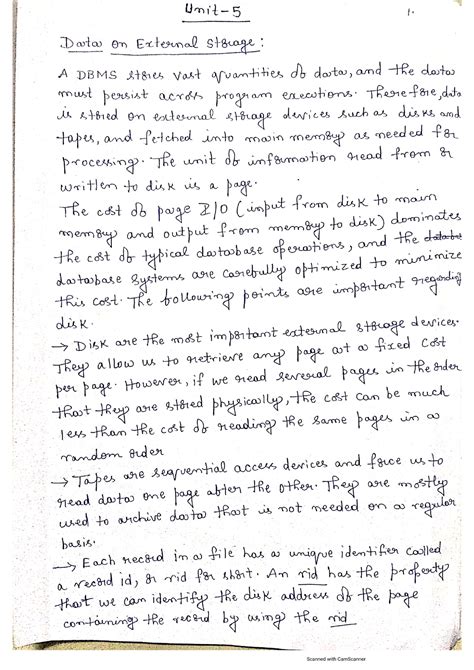 Unit-5
1.
Data on External Storage:
A DBMS stores vast quantities of data, and the data
must persist across program executions. Therefore, data
is stored on external storage devices such as disks and
tapes, and fetched into main memory as needed for
processing. The unit of information read from or
written to disk is a page.
The cost of page I/O (input from disk to main
memory and output from memory to disk) dominates
the cost of typical database operations, and the
database systems are carefully optimized to minimize
this cost. The following points are important regarding
disk.
→ Disk are the most important external storage devices.
They allow us to retrieve any page at a fixed cost
per page. However, if we read several pages in the order
that they are stored physically, the cost can be much
less than the cost of reading the same pages in a
random order
→ Tapes are sequential access devices and force us to
read data one page after the other. They are mostly
used to archive data that is not needed on a regular
basis.
→ Each record in a file has a unique identifer called
a record id, or rid for short. An rid has the property
that we can identify the disk address of the page
containing the record by using the rid
Scanned with CamScanner